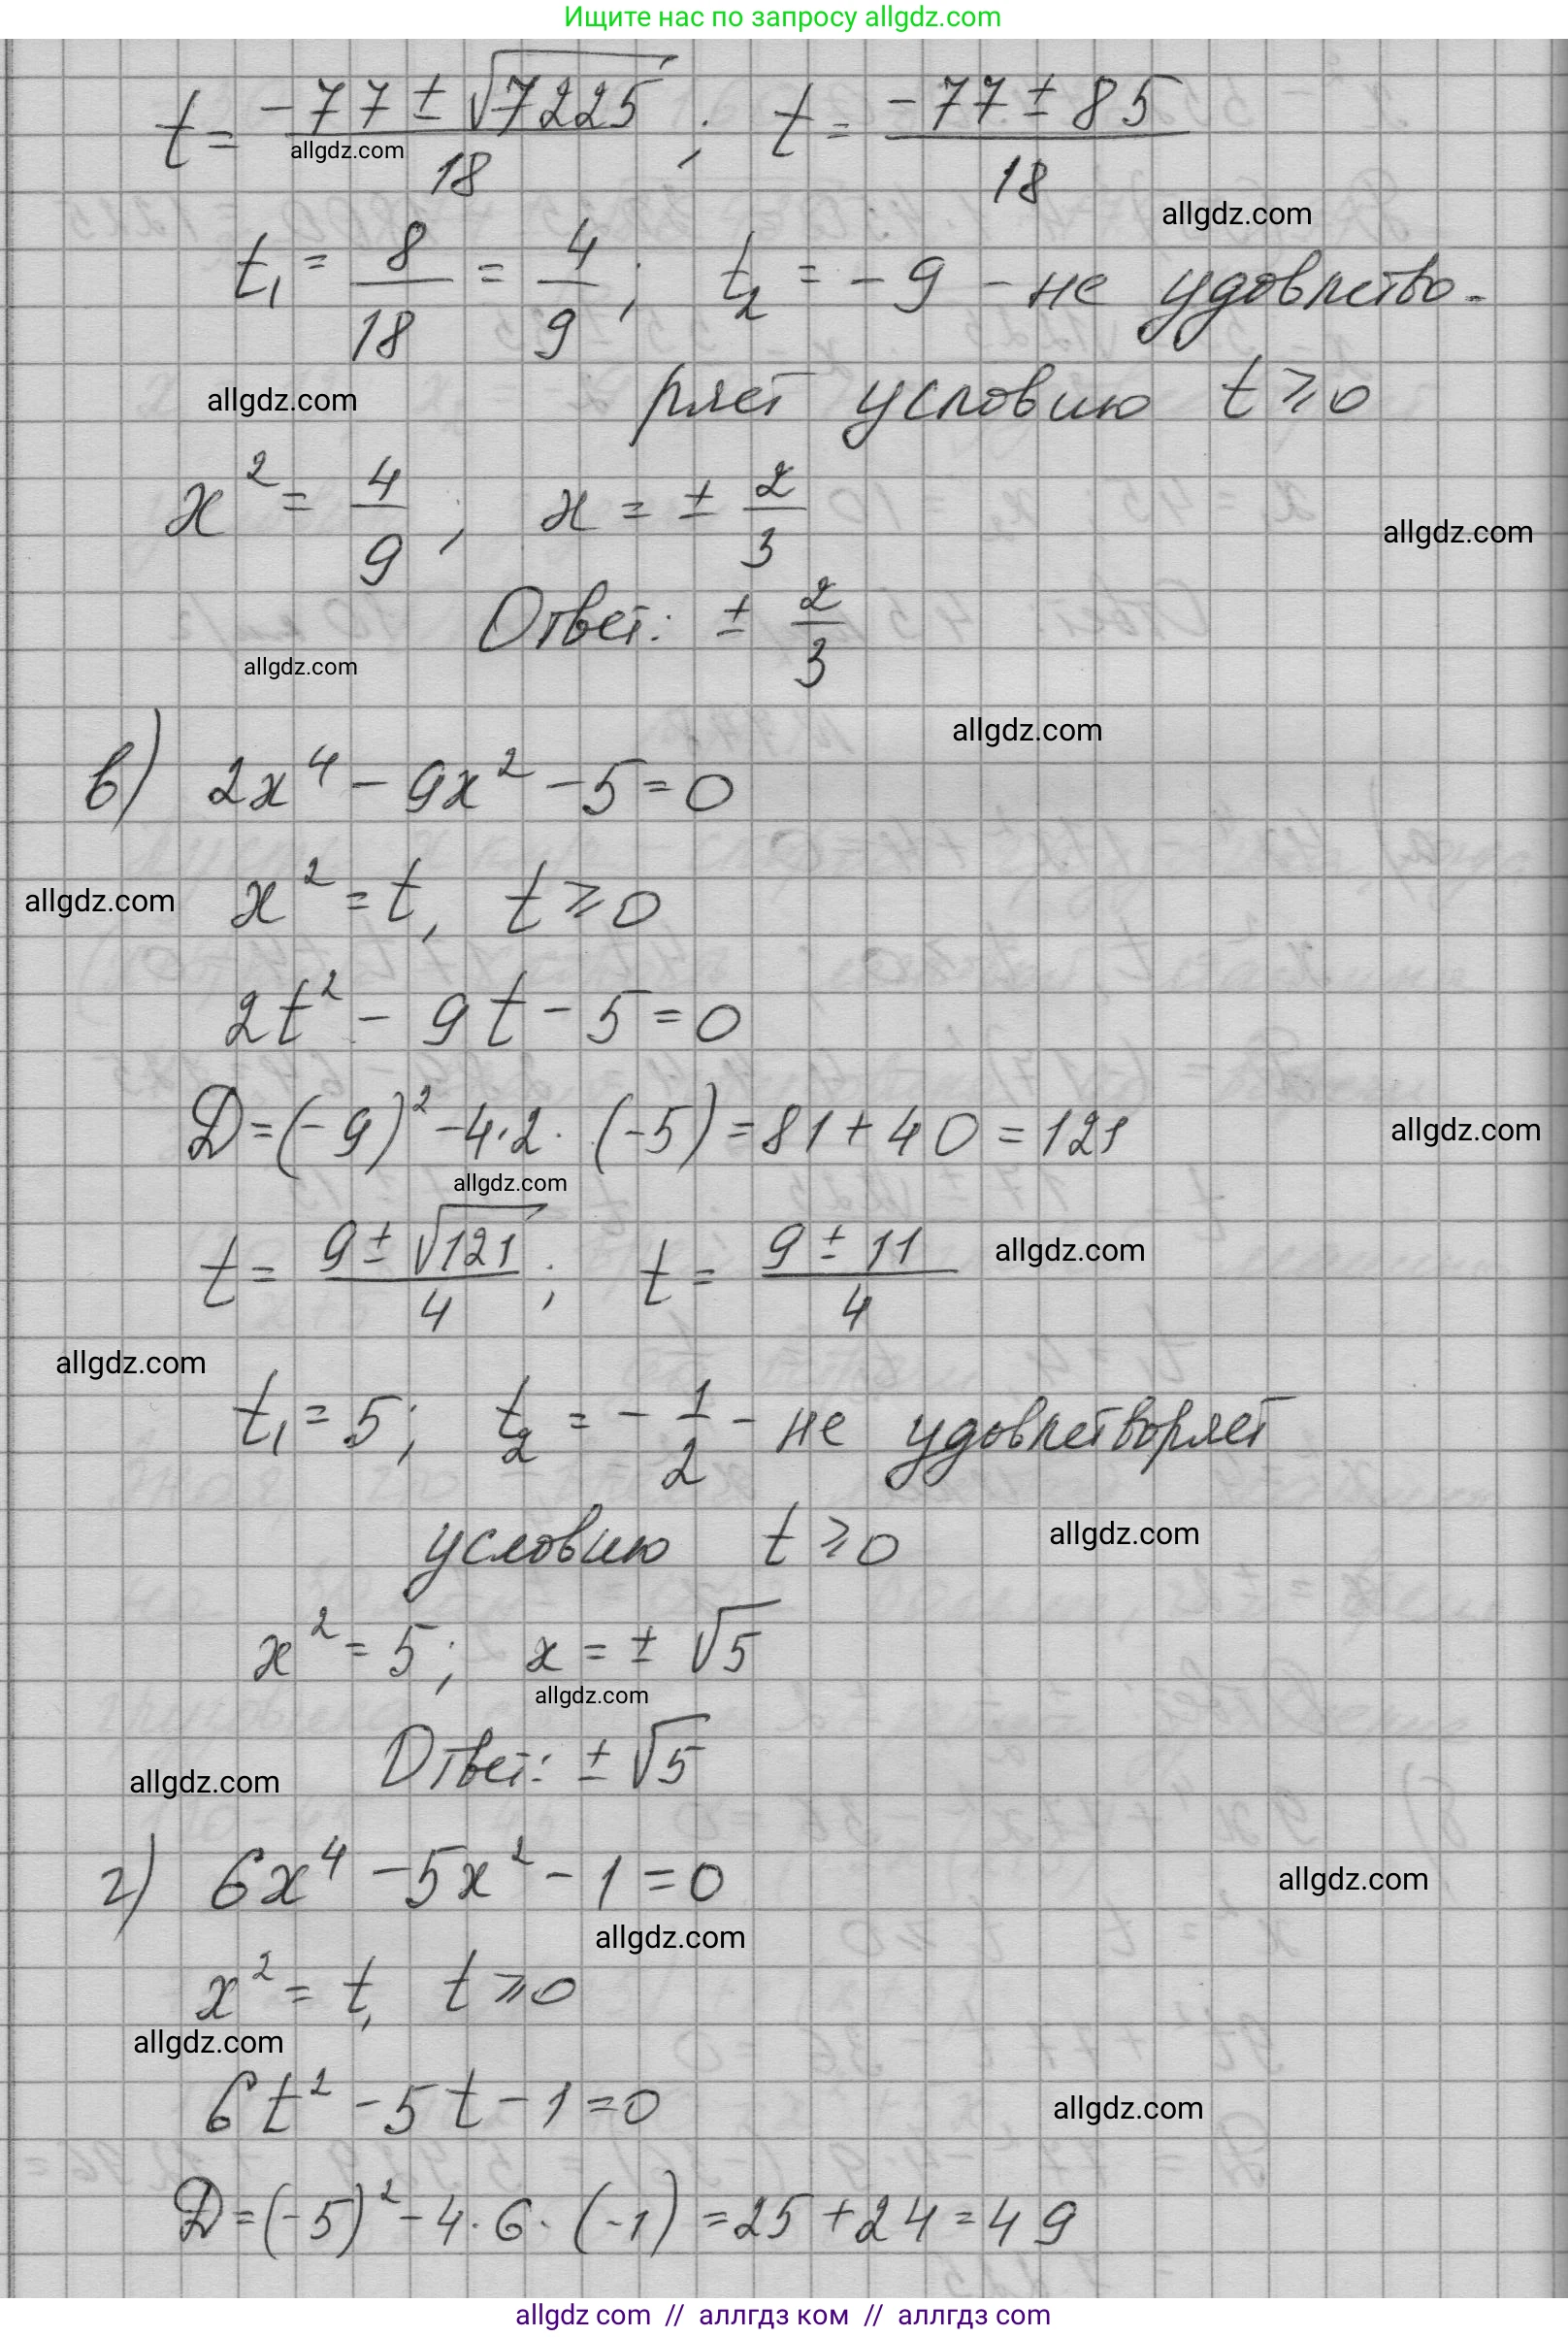 Ищите нас по запросу allgdz.com
t = (-77 ± √7225)/18 ; t = (-77 ± 85)/18
allgdz.com
allgdz.com
t₁ = 8/18 = 4/9 ; t₂ = -9 - не удовлетво-
ряет условию t ⩾ 0
allgdz.com
x² = 4/9 , x = ± 2/3
allgdz.com
Ответ: ± 2/3
allgdz.com
allgdz.com
в) 2x⁴ - 9x² - 5 = 0
x² = t, t ⩾ 0
allgdz.com
2t² - 9t - 5 = 0
D = (-9)² - 4·2·(-5) = 81 + 40 = 121
allgdz.com
allgdz.com
t = (9 ± √121)/4 ; t = (9 ± 11)/4
allgdz.com
allgdz.com
t₁ = 5; t₂ = - 1/2 - не удовлетворяет
условию t ⩾ 0
allgdz.com
x² = 5; x = ± √5
allgdz.com
Ответ: ± √5
allgdz.com
г) 6x⁴ - 5x² - 1 = 0
allgdz.com
allgdz.com
x² = t, t ⩾ 0
allgdz.com
6t² - 5t - 1 = 0
allgdz.com
D = (-5)² - 4·6·(-1) = 25 + 24 = 49
allgdz.com // аллгдз ком // аллгдз com